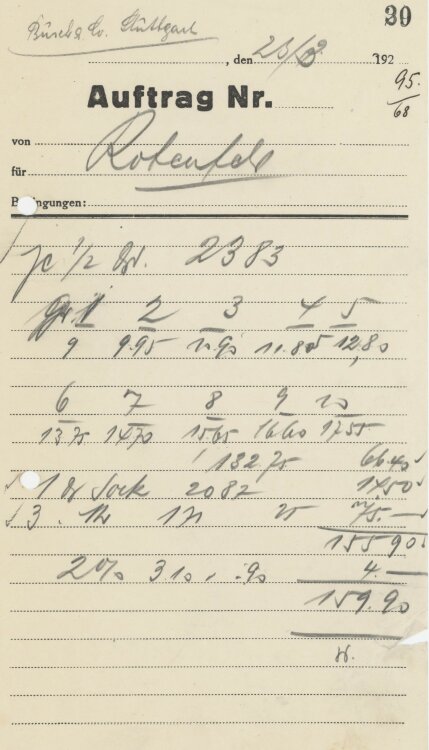 30
Büsch & Co. Stuttgart
, den 25/8 192
95.
68
Auftrag Nr.
von
für Rotenfels
Bedingungen:
je 1/2 Dz. 2383
Gr. 1 2 3 4 5
9 9.95 10.90 11.85 12,80
6 7 8 9 10
13 75 14 70 15,65 16 60 17 55
132 75 66.40
1 Dz Sock 2082 14 50
3 25 75.—
155 90
2% 3 10 . 90 4.—
159.90